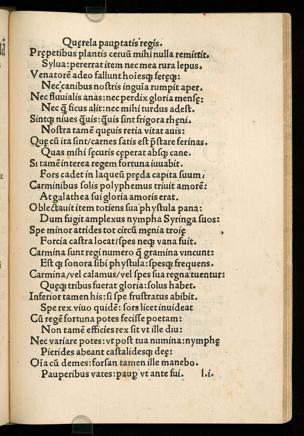 Querela paupertatis regis.
Prepetibus plantis ceruũ mihi nulla remittit.
Sylua: pererrat item nec mea rura lepus.
Venatorẽ adeo fallunt hoiesq; fereq;:
Nec canibus nostris inguia rumpit aper.
Nec fluuialis anas: nec perdix gloria mensę:
Nec q̃ ficus alit: nec mihi turdus adest.
Sintq; niues quis: quis sint frigora rheni.
Nostra tamẽ queuis retia vitat auis:
Que cũ ita sint/carnes satis est pͥstare ferinas.
Quas mihi securis ceperat absq; cane.
Si tamẽ interea regem fortuna iuuabit.
Fors cadet in laqueũ preda capita suum:
Carminibus solis polyphemus triuit amorẽ:
At galathea sui gloria amoris erat.
Oblectauit item totiens sua phystula pana:
Dum fugit amplexus nympha Syringa suos:
Spe minor atrides tot circũ męnia troię
Forcia castra locat/spes neq; vana fuit.
Carmina sunt regi numero q̃ gramina vincunt:
Est q; sonora sibi phystula: spesq; frequens.
Carmina/vel calamus/vel spes sua regna tuentur:
Queq; tribus fuerat gloria: solus habet.
Inferior tamen his: si spe frustratus abibit.
Spe rex viuo quidẽ: sors licet inuideat
Cũ regẽ fortuna potes fecisse poetam:
Non tamẽ efficies rex sit vt ille diu:
Nec variare potes: vt post tua numina: nymphę
Pierides abeant castalidesq; deę:
Oĩa cũ demes: forsan tamen ille manebo.
Pauperibus vates: paup̲ vt ante fui. l.i.